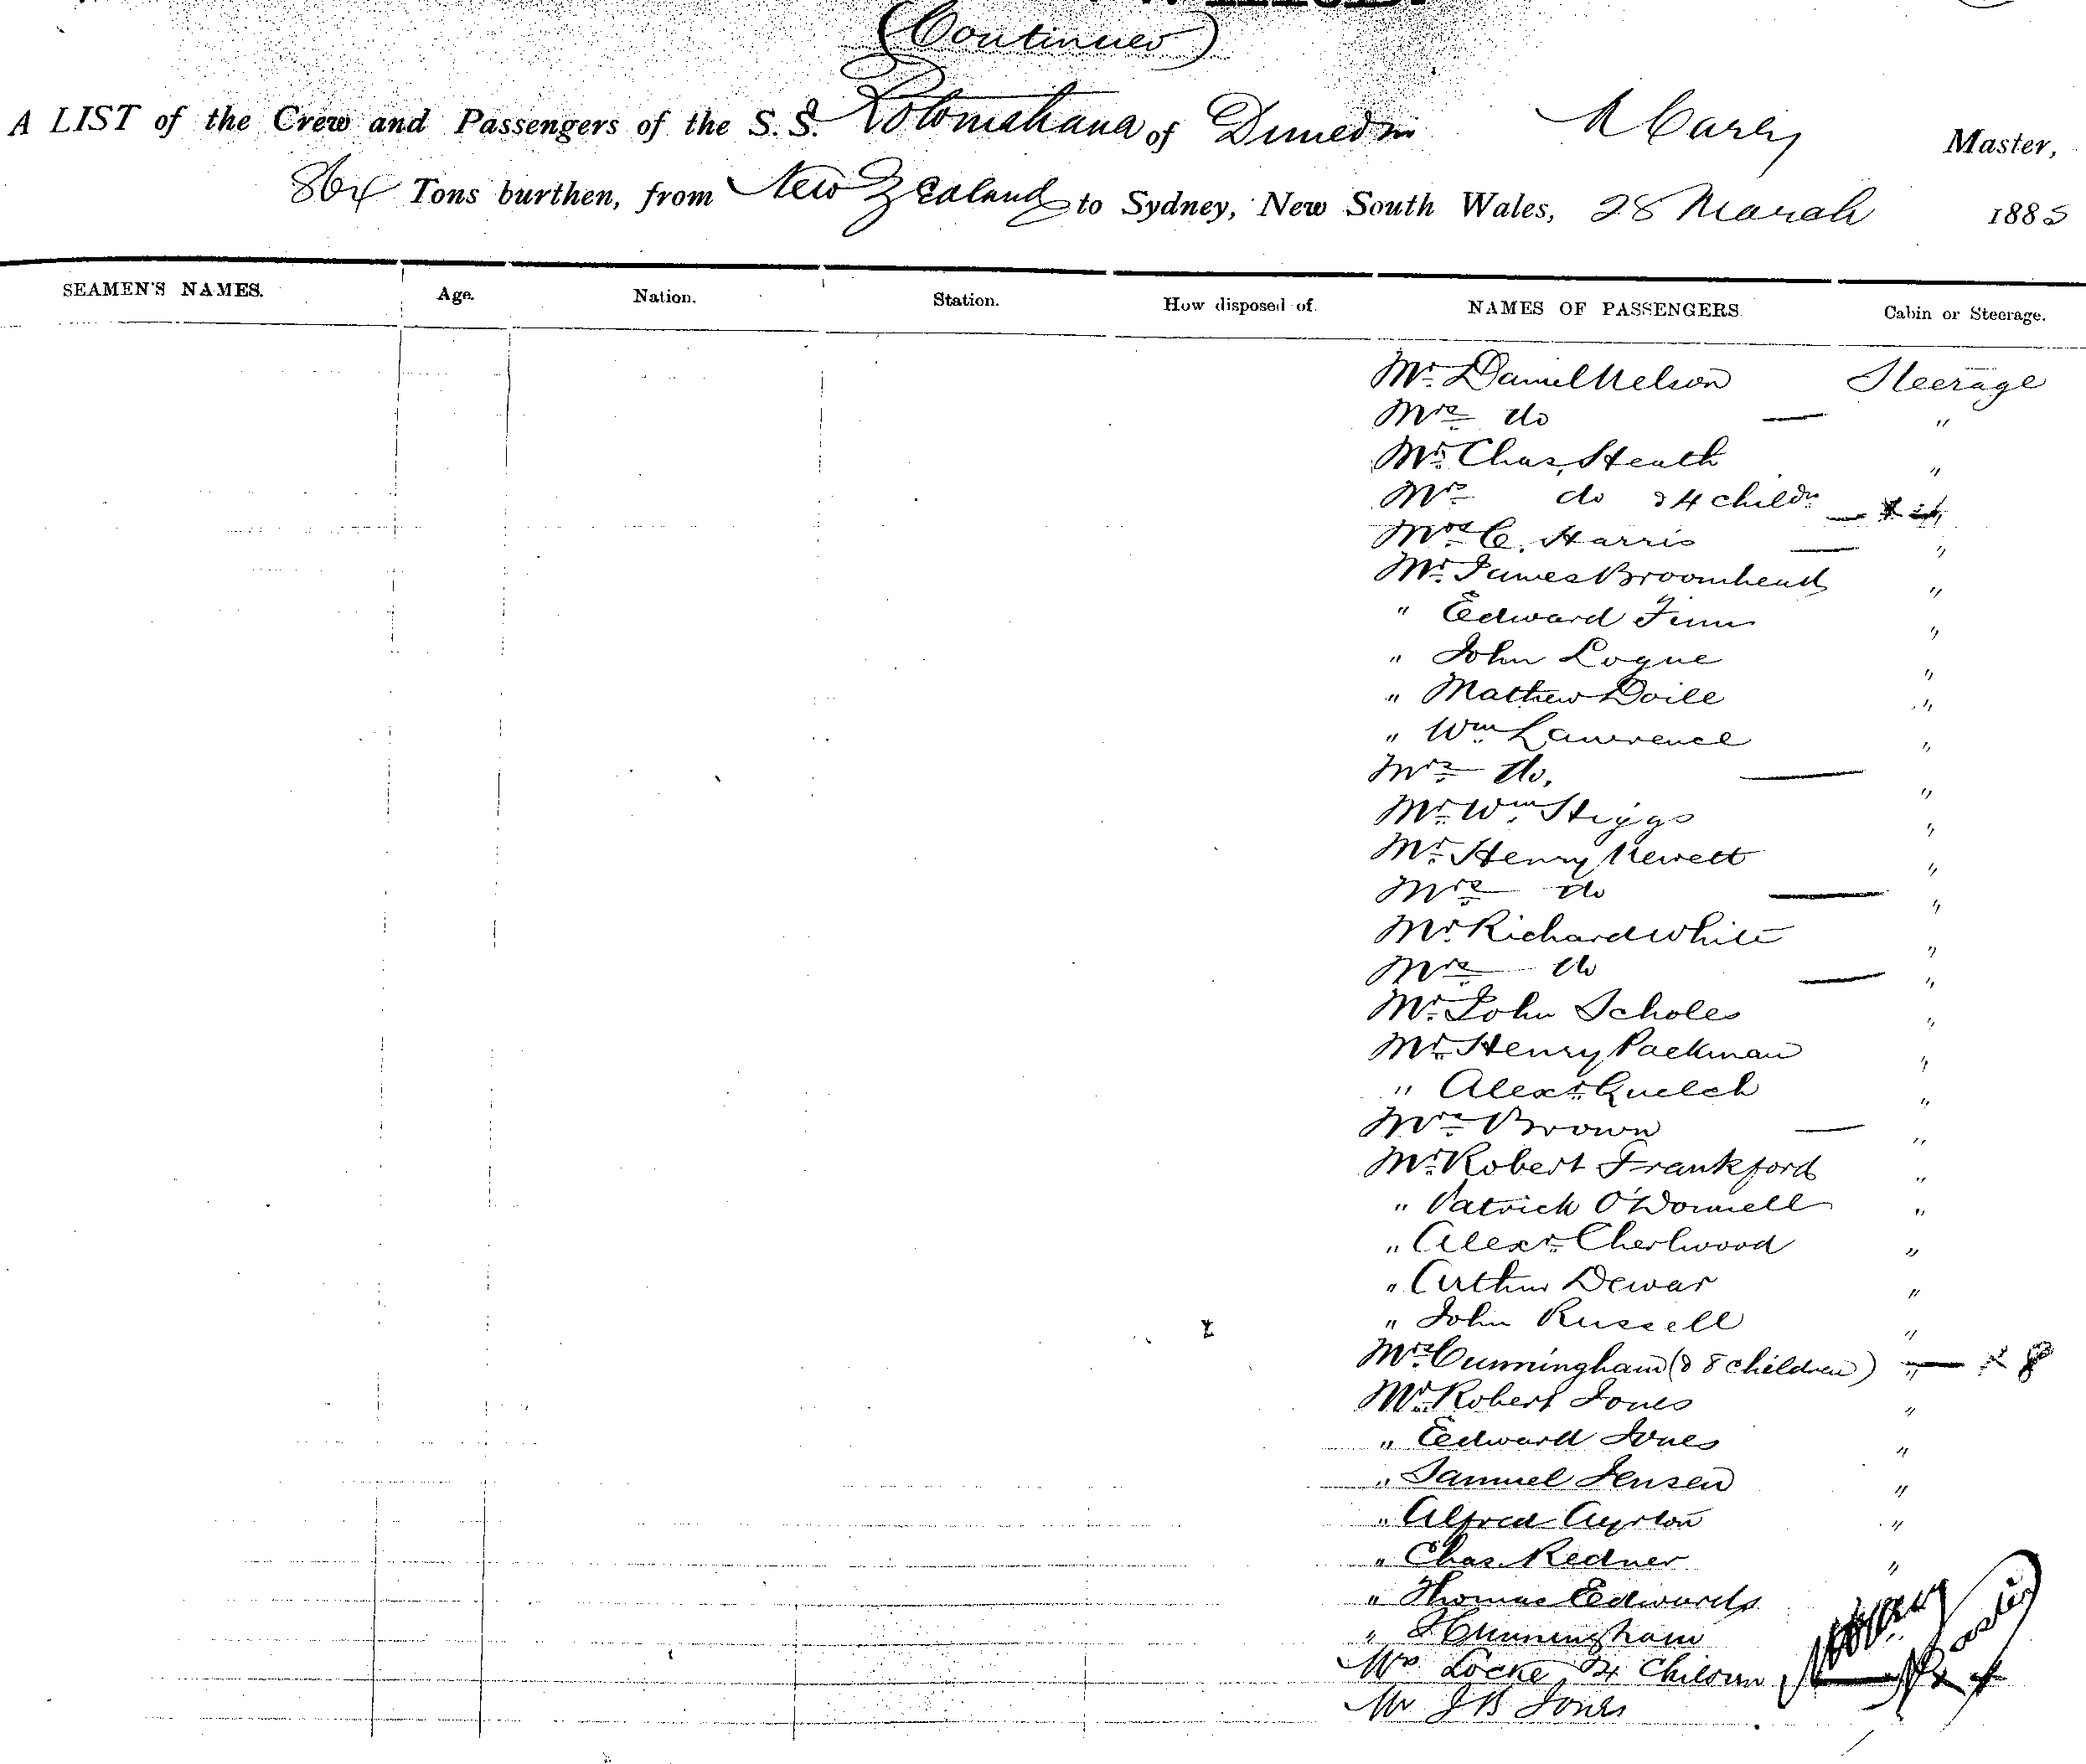 (Continued)
A LIST of the Crew and Passengers of the S.S. Rotomahana of Dunedin M Carey Master,
864 Tons burthen, from New Zealand to Sydney, New South Wales, 28 March 1885
SEAMEN'S NAMES. Age. Nation. Station. How disposed of. NAMES OF PASSENGERS. Cabin or Steerage.
Mr. Daniel Nelson Steerage
Mrs do — "
Mr. Chas. Heath "
Mrs do & 4 childn — x 4
Mrs C. Harris — "
Mr. James Broomhead "
" Edward Finn "
" John Logue "
" Mathew Doile "
" Wm Lawrence "
Mrs do. — "
Mr. Wm. Higgs "
Mr. Henry Newett "
Mrs do — "
Mr. Richard White "
Mrs do — "
Mr. John Scholes "
Mr. Henry Packman "
" Alexr. Quelch "
Mrs Brown — "
Mr. Robert Frankford "
" Patrick O'Donnell "
" Alexr. Cherlwood "
" Arthur Dewar "
" John Russell "
Mrs Cunningham (& 8 children) " — x 8
Mr. Robert Jones "
" Edward Jones "
" Samuel Jensen "
" Alfred Ayrton "
" Chas. Redner "
" Thomas Edwards
" J Cunningham
Mrs Locke & 4 Children — x 4
Mr J B Jones
Master